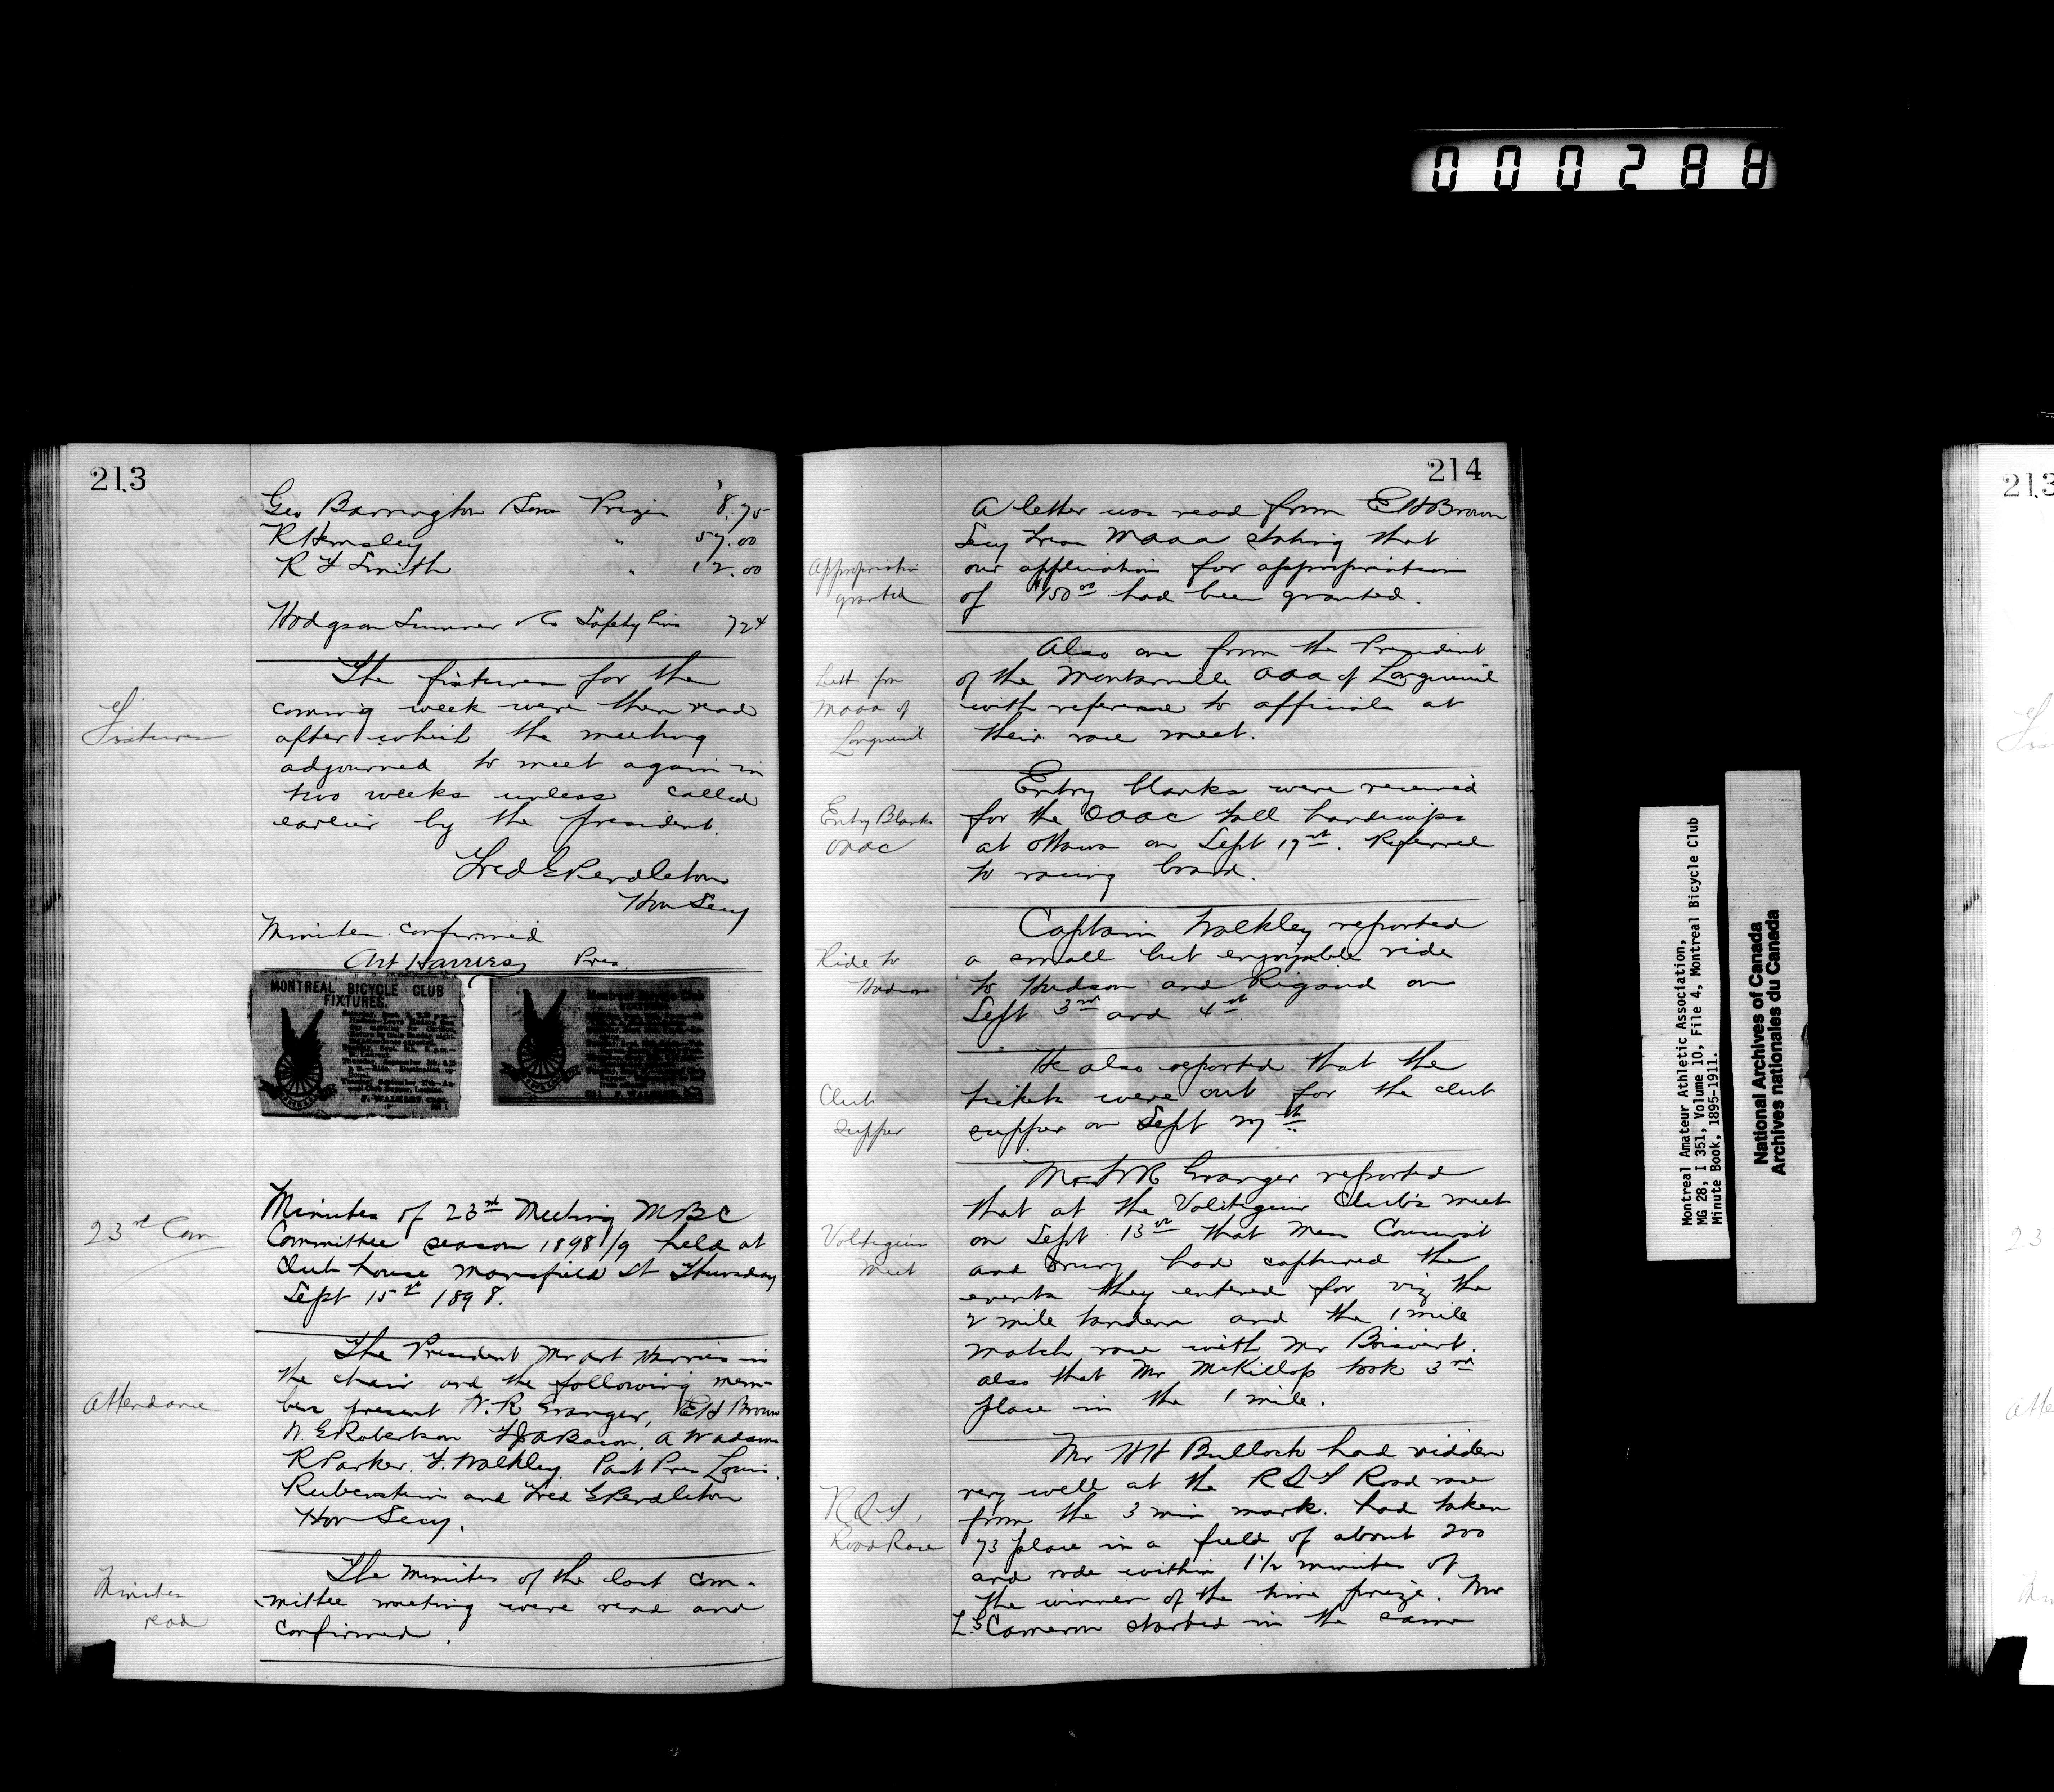 000288
213
Geo Barrington Sons Prizes 8.75
R Hemsley " 57.00
R F Smith " 12.00
Hodgson Sumner & Co Safety Pins 724
Fixtures
The fixtures for the
coming week were then read
after which the meeting
adjourned to meet again in
two weeks unless called
earlier by the president.
Fred E Pendleton
Hon Secy
Minutes confirmed
Art Harries, Pres.
MONTREAL BICYCLE CLUB
FIXTURES.
F. WALKLEY, Capt.
Montreal Bicycle Club
F. WALKLEY,
23rd Com
Minutes of 23rd Meeting MBC
Committee season 1898/9 held at
Club house Mansfield St Thursday
Sept 15th 1898.
Attendance
The President Mr Art Harries in
the chair and the following mem-
bers present W. R Granger, E H Brown
W. E Robertson A W Adams
R Parker. F. Walkley. Past Pres Louis
Rubenstein and Fred E Pendleton
Hon Secy.
Minutes
read
The minutes of the last com-
mittee meeting were read and
confirmed.
214
A letter was read from E H Brown
Secy Treas MAAA stating that
Appropriation
granted
our application for appropriation
of $150.00 had been granted.
Also one from the President
Lett from
MAAA of
Longueuil
of the Montarville AAA of Longueuil
with reference to officials at
their race meet.
Entry blanks were received
Entry Blanks
OAAC
for the OAAC Fall handicaps
at Ottawa on Sept 17th. Referred
to racing board.
Captain Walkley reported
Ride to
Hudson
a small but enjoyable ride
to Hudson and Rigaud on
Sept 3rd and 4th.
He also reported that the
Club
supper
tickets were out for the club
supper on Sept 27th
Mr W R Granger reported
that at the Voltigeur Club's meet
Voltigeur
Meet
on Sept 13th that Mess
and Drury had captured the
events they entered for viz the
2 mile tandem and the 1 mile
match race with Mr Boisvert.
also that Mr McKillop took 3rd
place in the 1 mile.
Mr H H Bulloch had ridden
very well at the R Q Y Road race
R Q Y,
Road Race
from the 3 min mark. had taken
73 place in a field of about 200
and rode within 1 1/2 minutes of
the winner of the time prize. Mr
L. S Cameron started in the same
Montreal Amateur Athletic Association,
MG 28, I 351, Volume 10, File 4, Montreal Bicycle Club
Minute Book, 1895-1911.
National Archives of Canada
Archives nationales du Canada
213
23